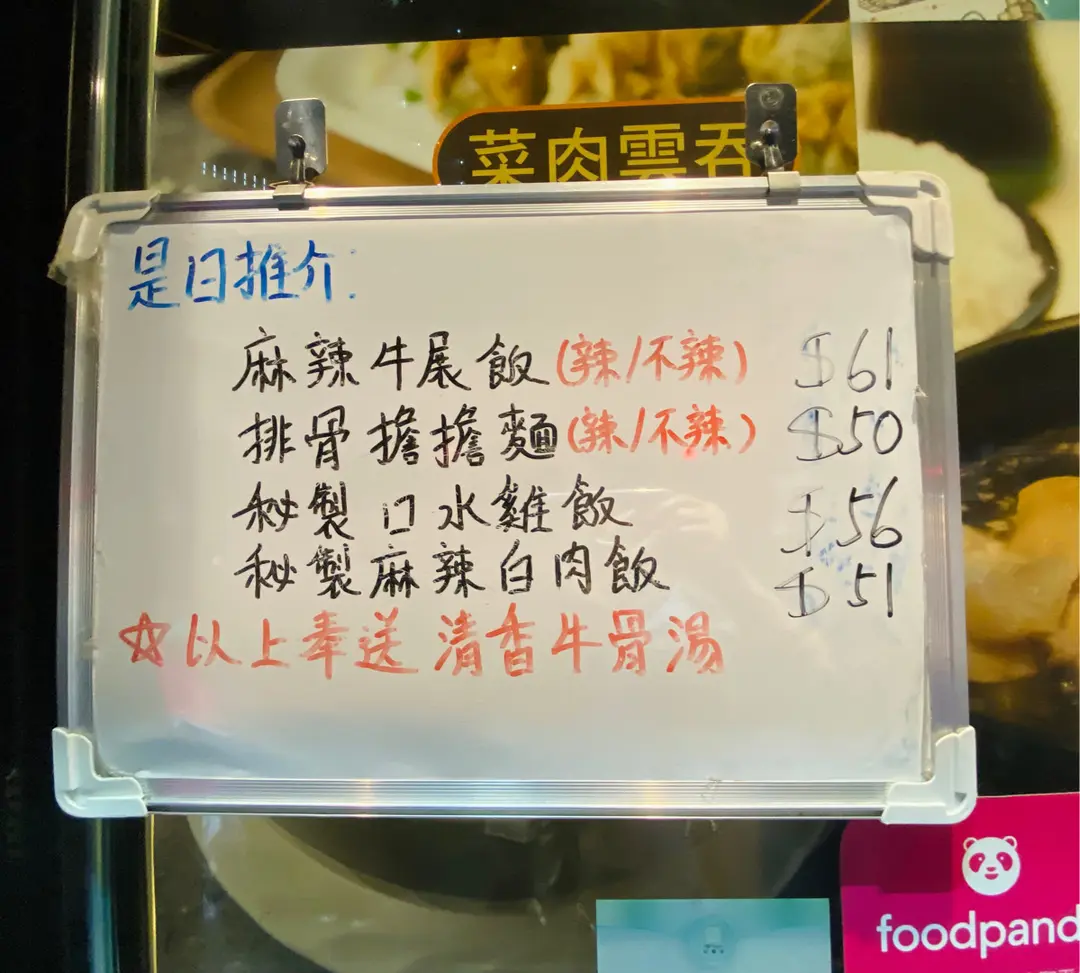 菜肉雲吞
是日推介:
麻辣牛展飯(辣/不辣) $61
排骨擔擔麵(辣/不辣) $50
秘製口水雞飯 $56
秘製麻辣白肉飯 $51
☆以上奉送清香牛骨湯
foodpand